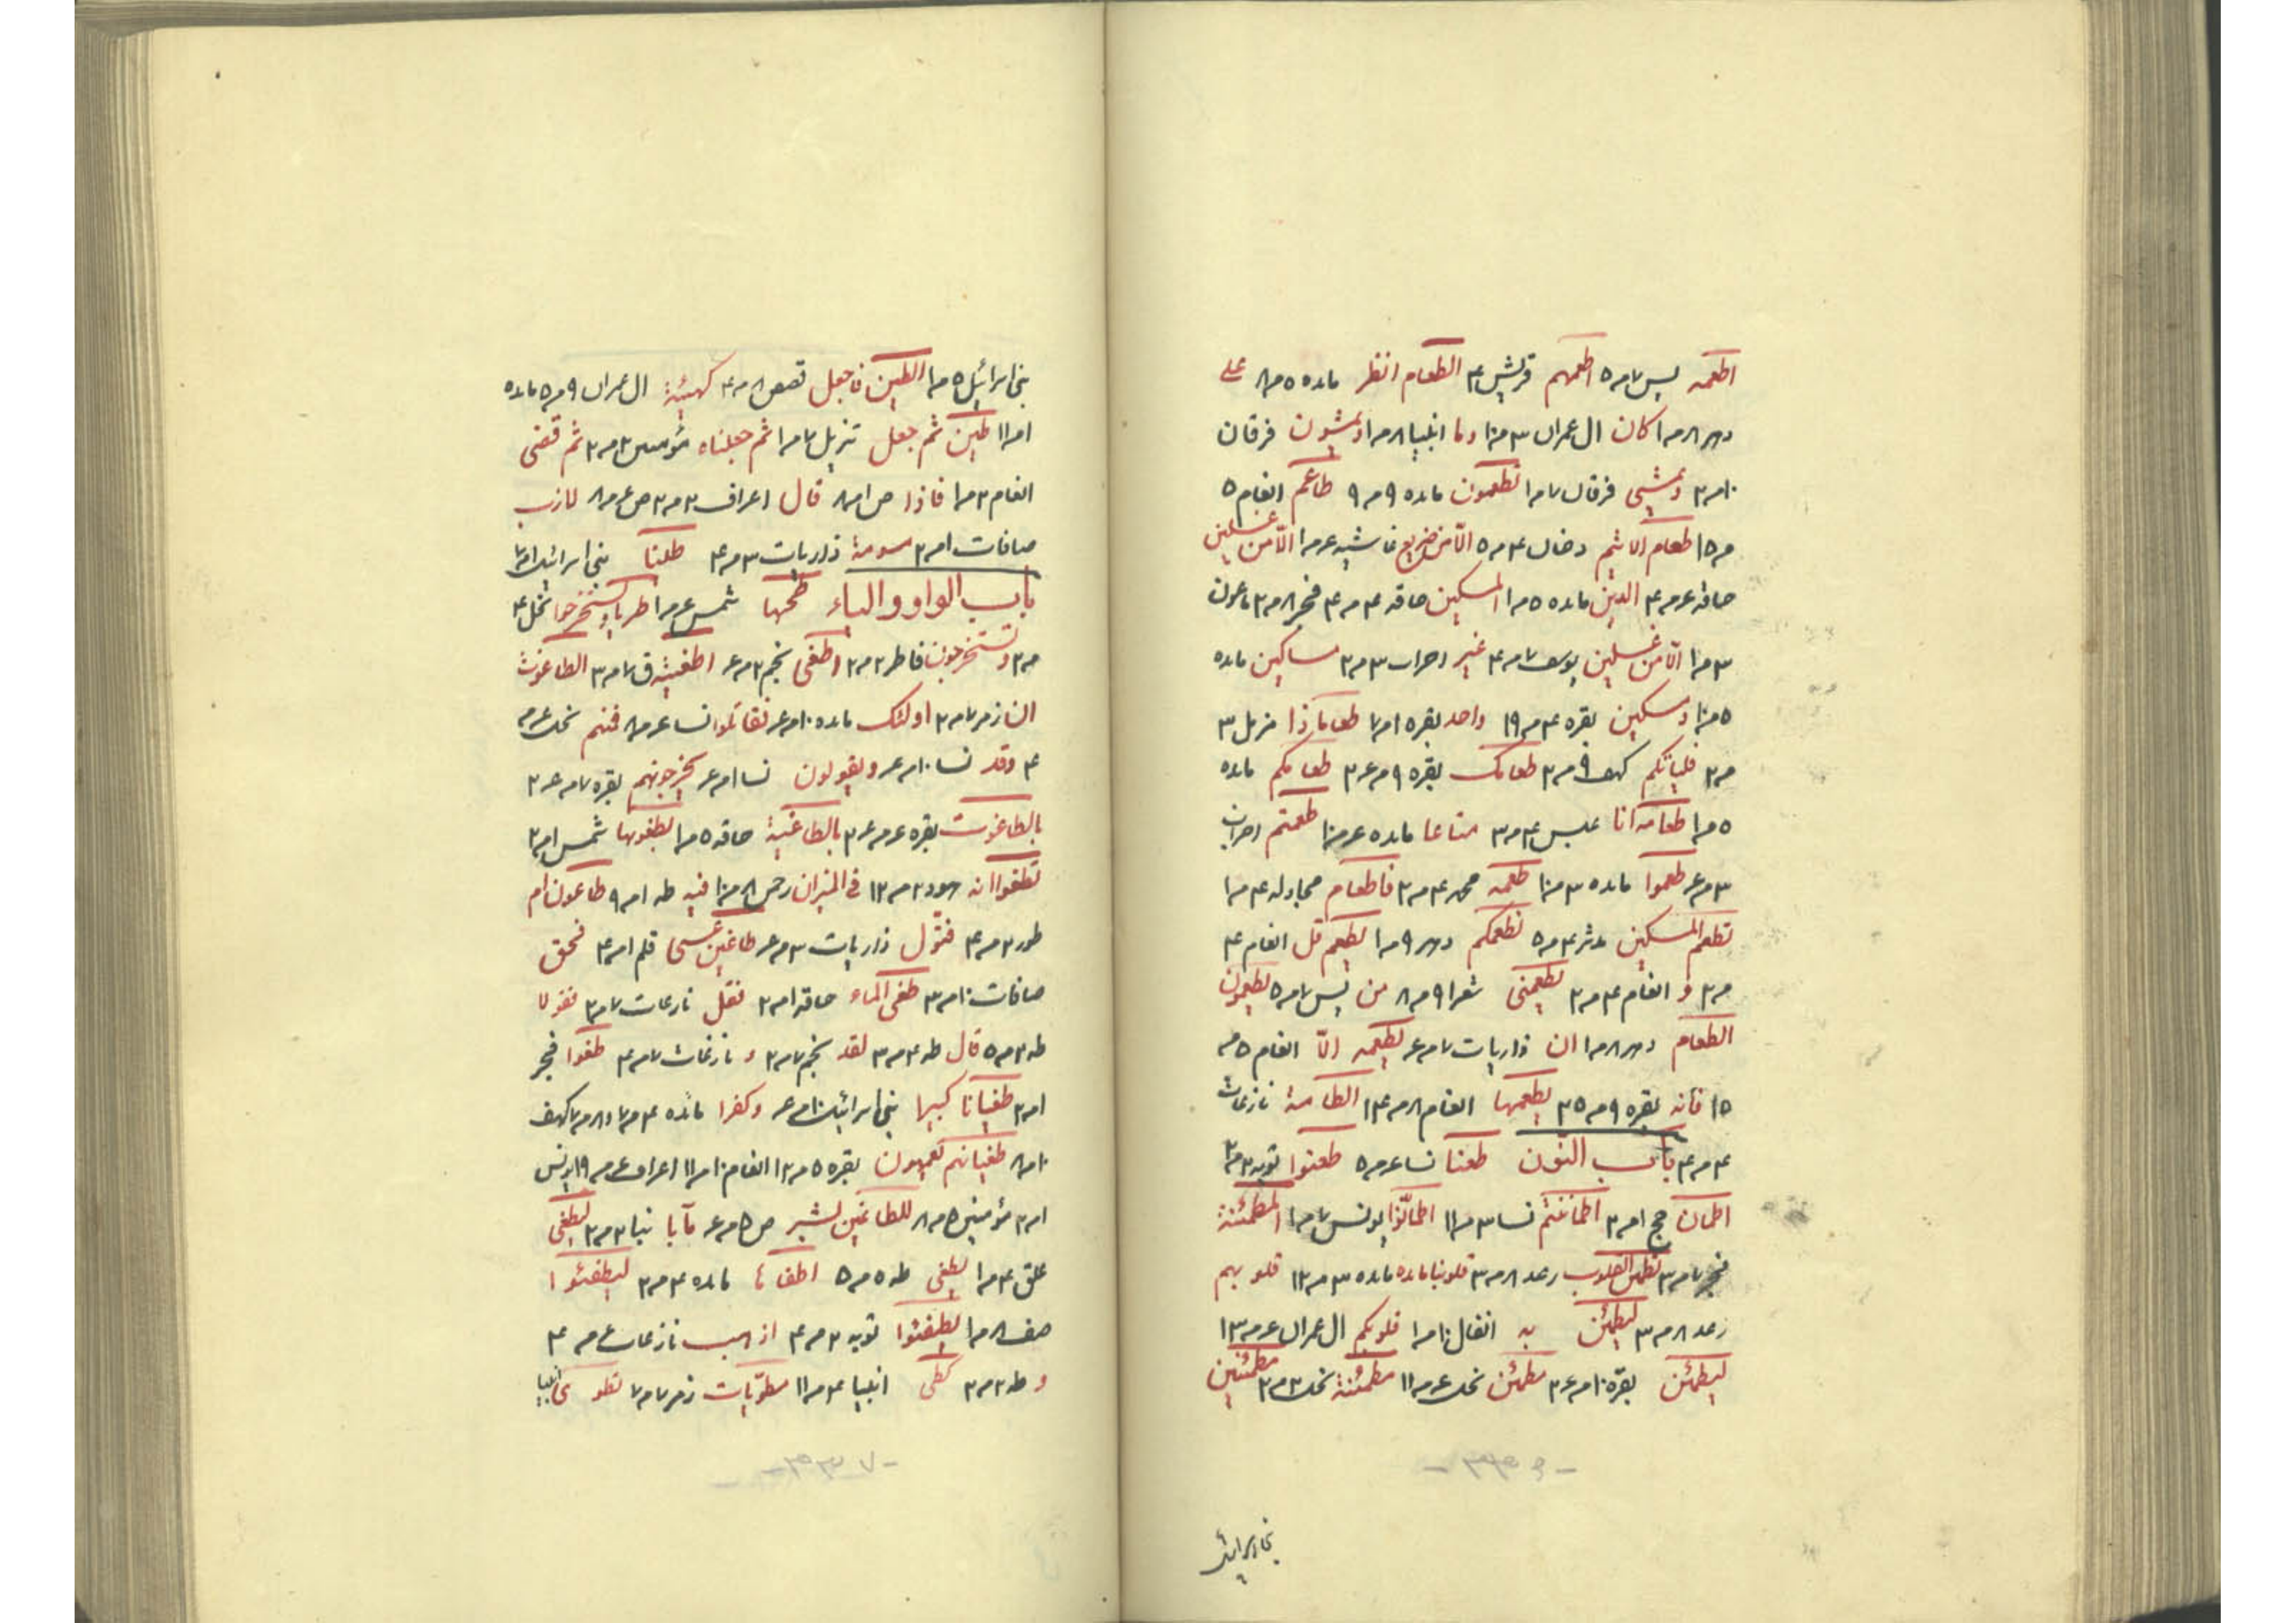 اطعمه یس ۷ م ۵ اطعمهم قریش ۴ الطعام انظر مائده ۵ م ۸ علی
دهر ۸ م ۱ کان ال عمران ۳ م ۱۰ وما انبیا ۸ م ۱ ویمشون فرقان
۱۰ م ۲ ویمشی فرقان ۷ م ۱ تطعمون مائده ۹ م ۹ طاعم انعام ۵
م ۱۵ طعام الاثیم دخان ۴ م ۵ الّا من ضریع غاشیه ۶ م ۱ الّا من غسلین
حاقه ۶ م ۴ الذین مائده ۵ م ۱ المسکین حاقه ۴ م ۴ فجر ۸ م ۲ ماعون
۳ م ۱ الّا من غسلین یوسف ۷ م ۴ غیر احزاب ۳ م ۲ مساکین مائده
۵ م ۱۰ و مسکین بقره ۴ م ۱۹ واحد بقره ۱ م ۷ طعاما ذا مزمل ۳
م ۲ فلیاتکم کهف ۹ م ۲ طعامک بقره ۹ م ۶ ۲ طعامکم مائده
۵ م ۱ طعامه انا عبس ۴ م ۳ متاعا مائده ۶ م ۱۰ طعمتم احزاب
۳ م ۶ طعموا مائده ۳ م ۱۰ طعمه محمد ۴ م ۲ فاطعام مجادله ۴ م ۱
نطعم المسکین مدثر ۴ م ۵ نطعمکم دهر ۹ م ۱ یطعم قل انعام ۴
م ۲ و انعام ۴ م ۲ یطعمنی شعرا ۹ م ۸ من یس ۷ م ۵ یطعمون
الطعام دهر ۸ م ۱ ان ذاریات ۷ م ۶ یطعمه الّا انعام ۵ م
۱۵ فانه بقره ۹ م ۲۵ یطعمها انعام ۸ م ۱۴ الطامة نازعات
۴ م ۴ باب النون طعنا نسا ۶ م ۵ طعنوا توبه ۲ م ۲
اطمان حج ۱ م ۲ اطماننتم نسا ۳ م ۱۱ اطمانّوا یونس ۷ م ۱ المطمئنة
فجر ۷ م ۳ تطمئن القلوب رعد ۸ م ۳ قلوبنا مائده ۳ م ۱۲ قلوبهم
رعد ۸ م ۳ لتطمئن به انفال ۱۰ م ۱ قلوبکم ال عمران ۶ م ۱۳
لیطمئن بقره ۱۰ م ۶ ۲ مطمئن نحل ۶ م ۱۱ مطمئنة نحل ۲ م ۲ مطمئنین
بنی اسرائیل
بنی اسرائیل ۵ م ۱ الطین فاجعل قصص ۸ م ۴ کهیئة ال عمران ۹ م ۵ مائده
۱ م ۱۱ طین ثم جعل تنزیل ۷ م ۱ ثم جعلناه مؤمنین ۲ م ۲ ثم قضی
انعام ۲ م ۱ فاذا ص ۱ م ۸ قال اعراف ۲ م ۲ ص ۶ م ۸ لازب
صافات ۱ م ۲ مسومة ذاریات ۳ م ۴ طینا بنی اسرائیل ۱ م ۷
باب الواو والیاء طحیها شمس ۶ م ۱ طریا وتستخرجوا نحل ۴
م ۲ وتستخرجون فاطر ۲ م ۲ اطغی نجم ۲ م ۶ اطغیته ق ۷ م ۳ الطاغوت
ان زمر ۷ م ۲ اولئک مائده ۱۰ م ۶ فقاتلوا نسا ۶ م ۸ فمنهم نحل ۶ م
۴ وقد نسا ۱۰ م ۶ ویقولون نسا ۱ م ۶ یخرجونهم بقره ۷ م ۶ ۲
بالطاغوت بقره ۶ م ۶ ۲ بالطاغیة حاقه ۵ م ۱ بطغویها شمس ۱ م ۲
تطغوا انه هود ۲ م ۱۲ فی المیزان رحمن ۸ م ۱۰ فیه طه ۱ م ۹ طاغون ام
طور ۲ م ۴ فتولّ ذاریات ۳ م ۶ طاغین عسی قلم ۱ م ۴ فحق
صافات ۱۰ م ۳ طغی الماء حاقه ۱ م ۲ فقل نازعات ۷ م ۲ فقولا
طه ۲ م ۵ قال طه ۴ م ۳ لقد نجم ۷ م ۲ و نازعات ۷ م ۴ طغوا فجر
۱ م ۲ طغیانا کبیرا بنی اسرائیل ۱۰ م ۶ وکفرا مائده ۴ م ۷ و ۸ م ۷ کهف
۱۰ م ۸ طغیانهم یعمهون بقره ۵ م ۱۲ انعام ۱۰ م ۱۱ اعراف ۶ م ۱۹ یونس
۱ م ۲ مؤمنین ۵ م ۸ للطاغین لشر ص ۵ م ۶ مآبا نبا ۲ م ۲ لیطغی
علق ۴ م ۱ یطغی طه ۵ م ۵ اطفاها مائده ۴ م ۲ لیطفئوا
صف ۸ م ۱ یطفئوا توبه ۲ م ۴ اذهب نازعات ۶ م ۴
و طه ۲ م ۲ کطی انبیا ۴ م ۱۱ مطویّات زمر ۷ م ۷ نطوی انبیا